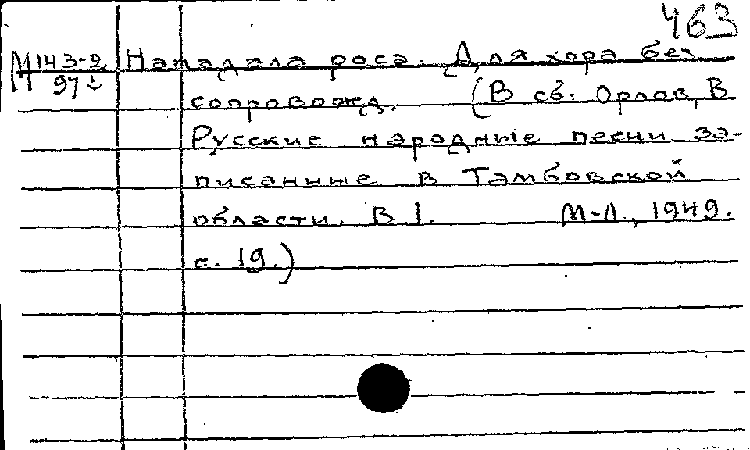 463
М 143-9 Нападала роса. Для хора без
сопровожд. (В сб. Орлов, В
Русские народные песни за-
писанные в Тамбовской
области. В 1. М-Л., 1949.
с. 19.)